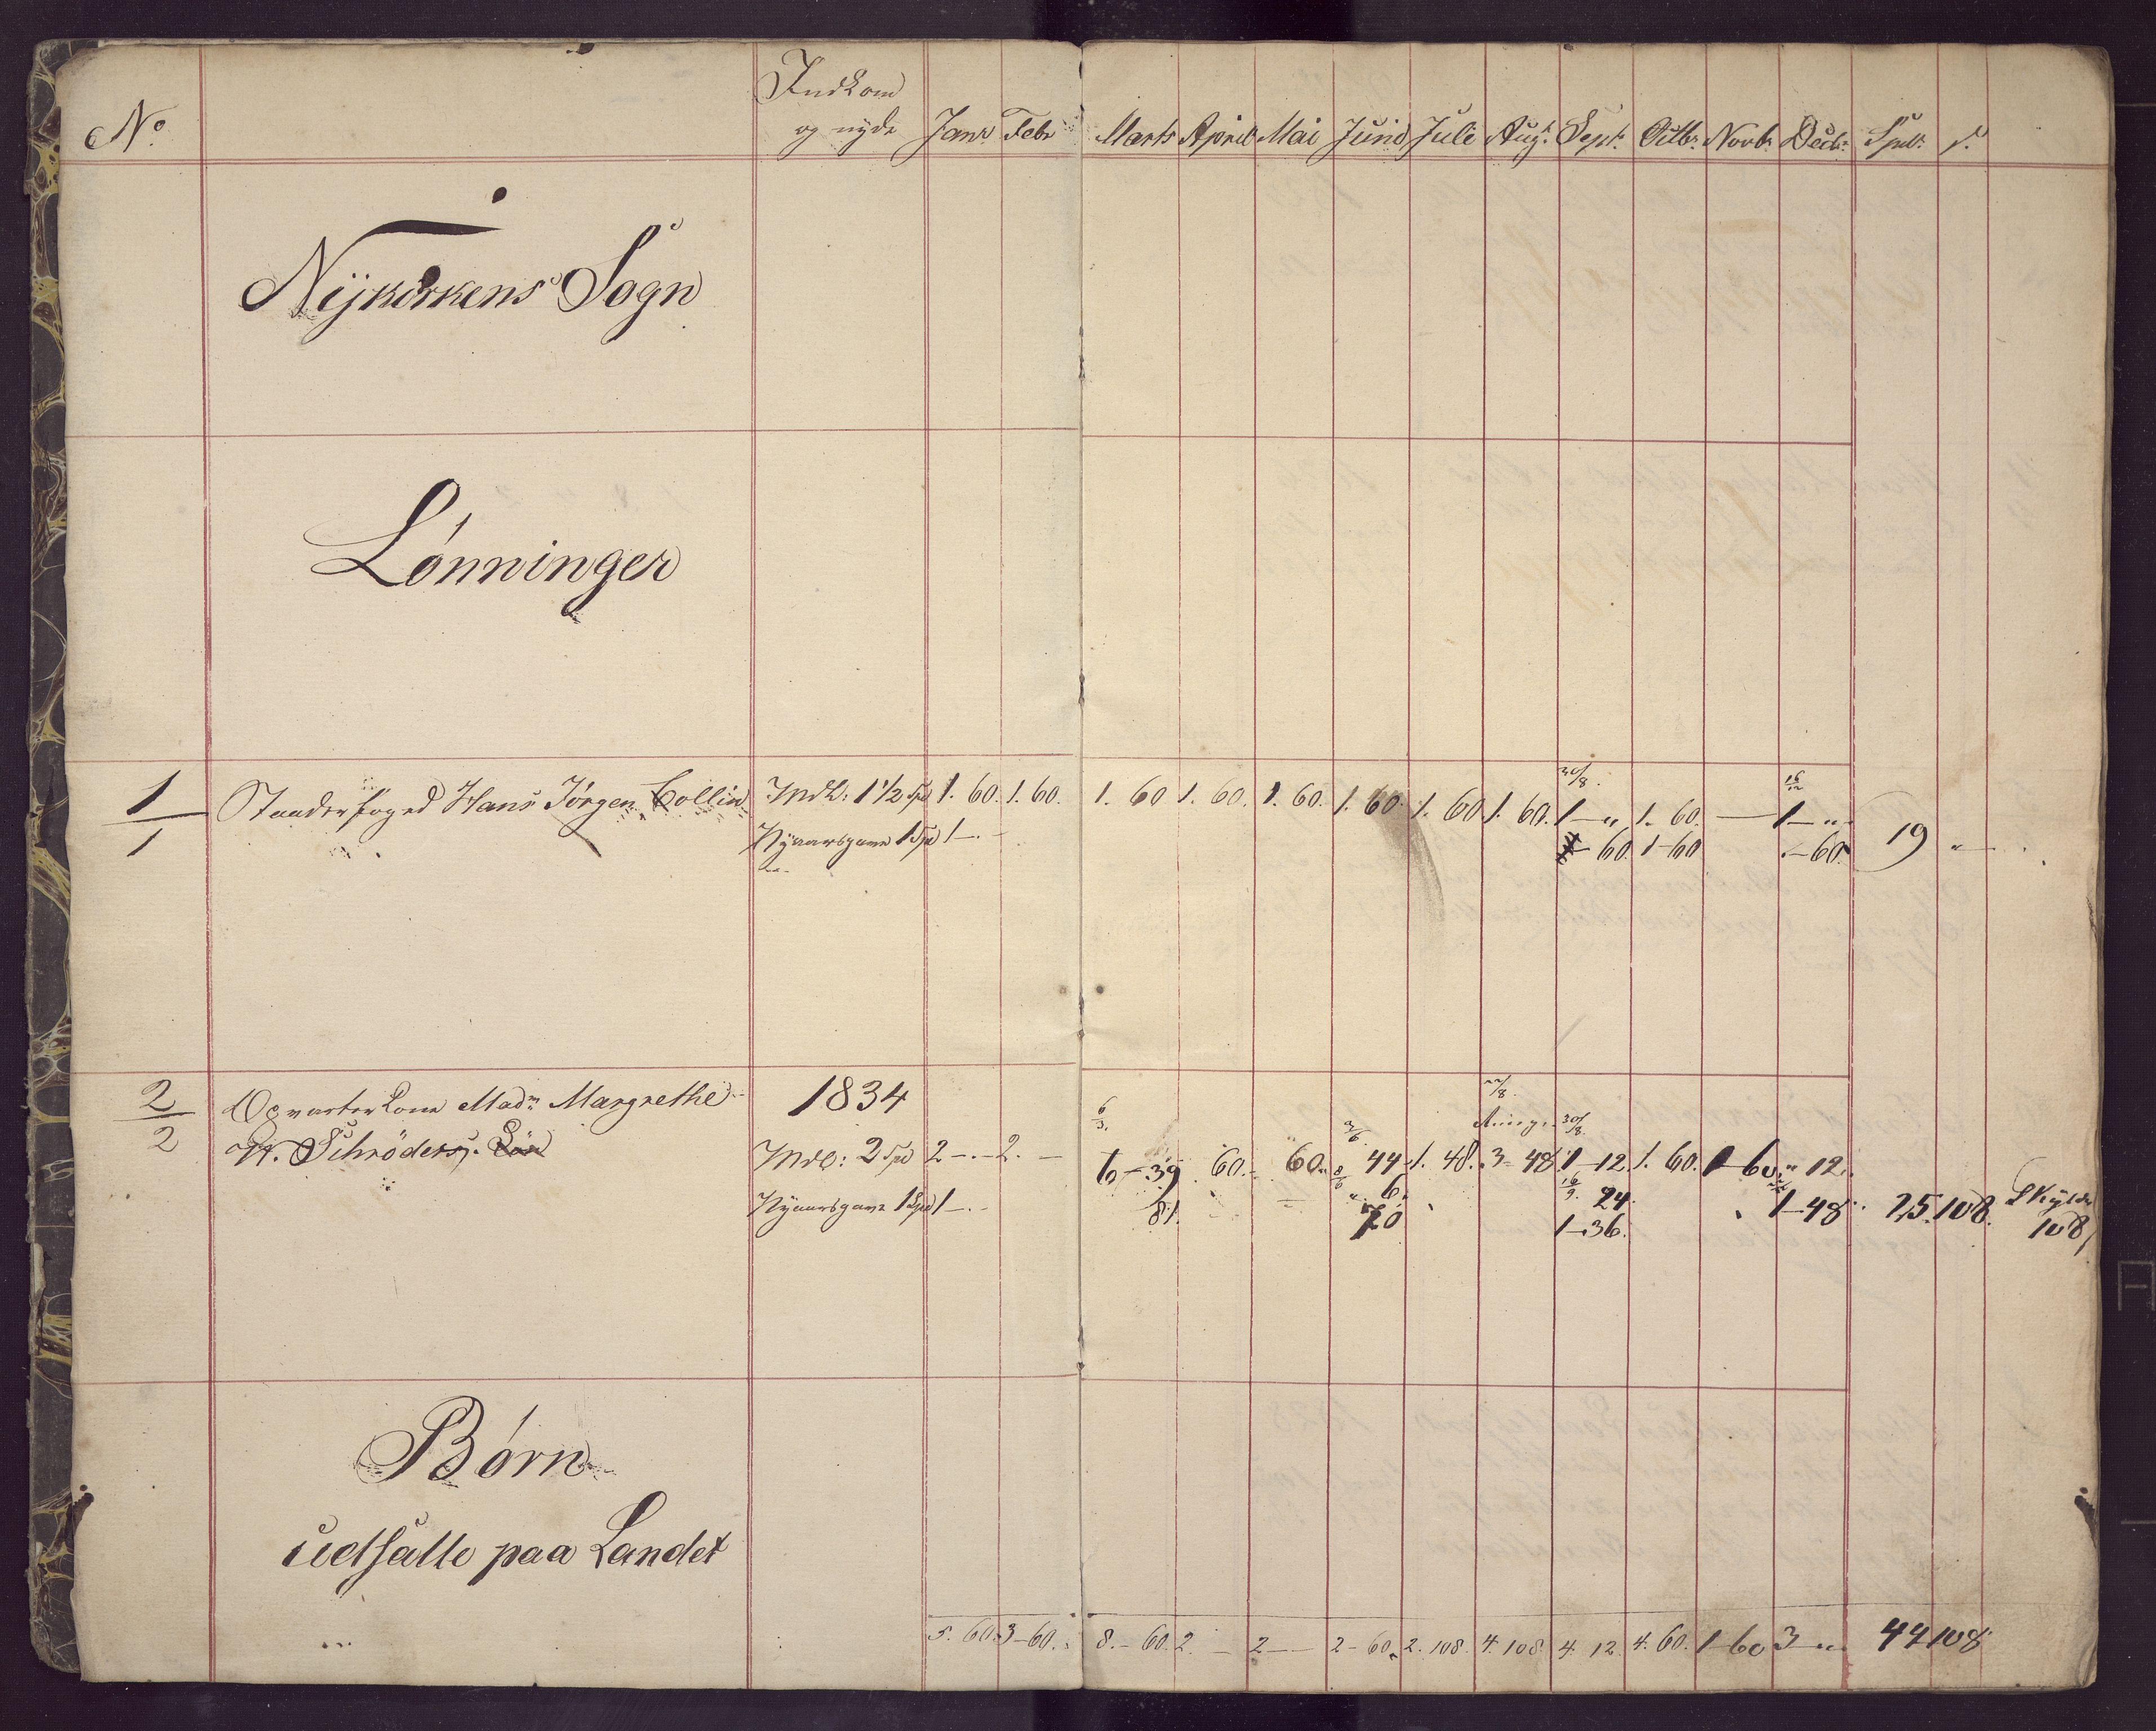 No. Indkom
og nyde Janr Febr Marts April Mai Junii Juli Augt. Sept. Octbr. Novbr. Decbr. Spd. s.
Nÿkörkens Sogn
Lønninger
1/1 Stauderfoged Hans Jörgen Collin Mdl: 1 1/2 Spd 1. 60. 1. 60. 1. 60 1. 60. 1. 60. 1. 60. 1. 60 1. 60. 30/8. 1 — " 1. 60. — 16/12 1 — " 19 "
Nyaarsgave 1 Spd 1 — . - 60. 1-60 . - 60.
2/2 Madm Margrethe 1834
Schröder Mdl: 2 Spd 2 — . - 2. — 6/3. 6 - 39 60. - 60. 3/6. 44 1. 48. 22/8. 3 - 48 30/8. 1 - 12. 1. 60. 1 - 60 " 12.
Nyaarsgave 1 Spd 1 — . - 81. 8/6 " 6. 16/9. 24. 1 - 48. 25. 108. Skylder
20 1 - 36. 108
Børn
udsatte paa Landet
5. 60. 3 - 60. 8. - 60. 2. — 2 — 2 - 60. 2. 108. 4. 108. 4. 12. 4. 60. 1 - 60 3 — " 44 108